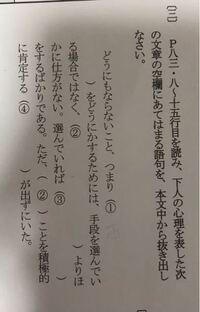 〔三〕 P八三・八〜十五行目を読み、下人の心理を表した次
の文章の空欄にあてはまる語句を、本文中から抜き出し
なさい。
どうにもならないこと、つまり（①
）をどうにかするためには、手段を選んでい
る場合ではなく、（②　　　　）よりほ
かに仕方がない。選んでいれば（③　　　　）
をするばかりである。ただ（②）ことを積極的
に肯定する（④　　　　）が出ずにいた。